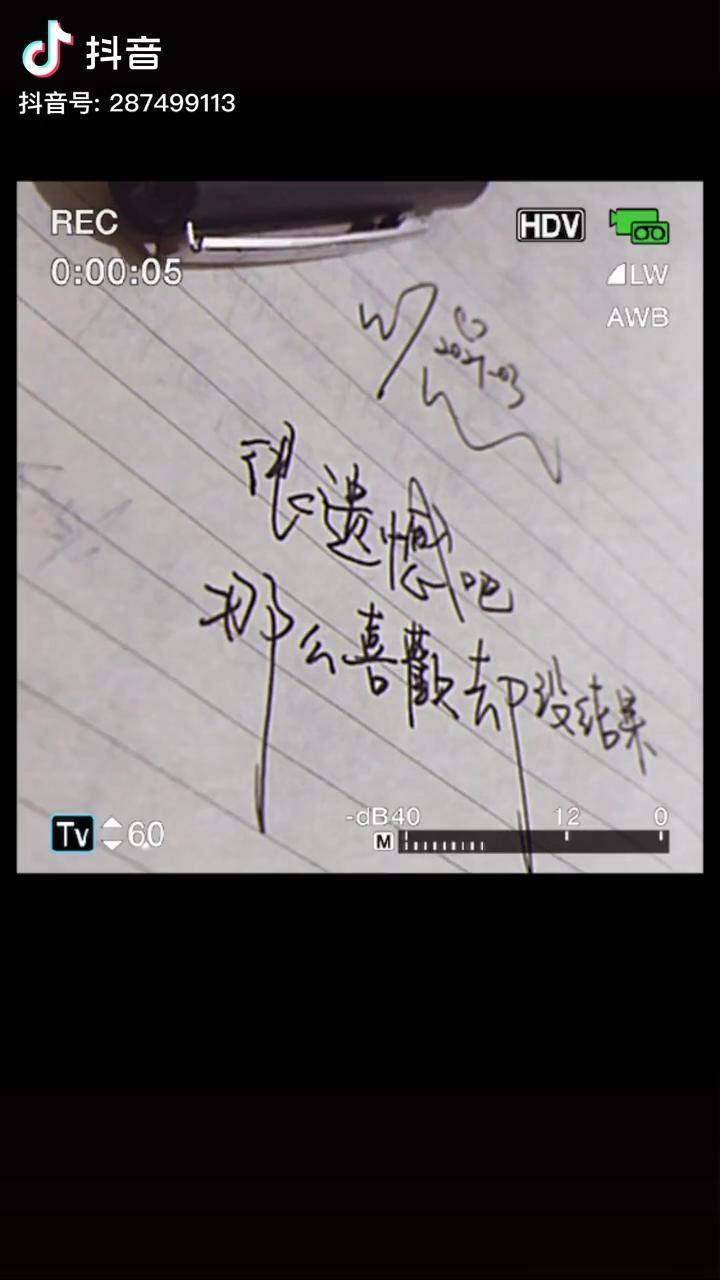 抖音
抖音号: 287499113
REC
HDV
0:00:05
LW
AWB
2021.03
很遗憾吧
那么喜歡却没结果
-dB40 12 0
M
Tv 60